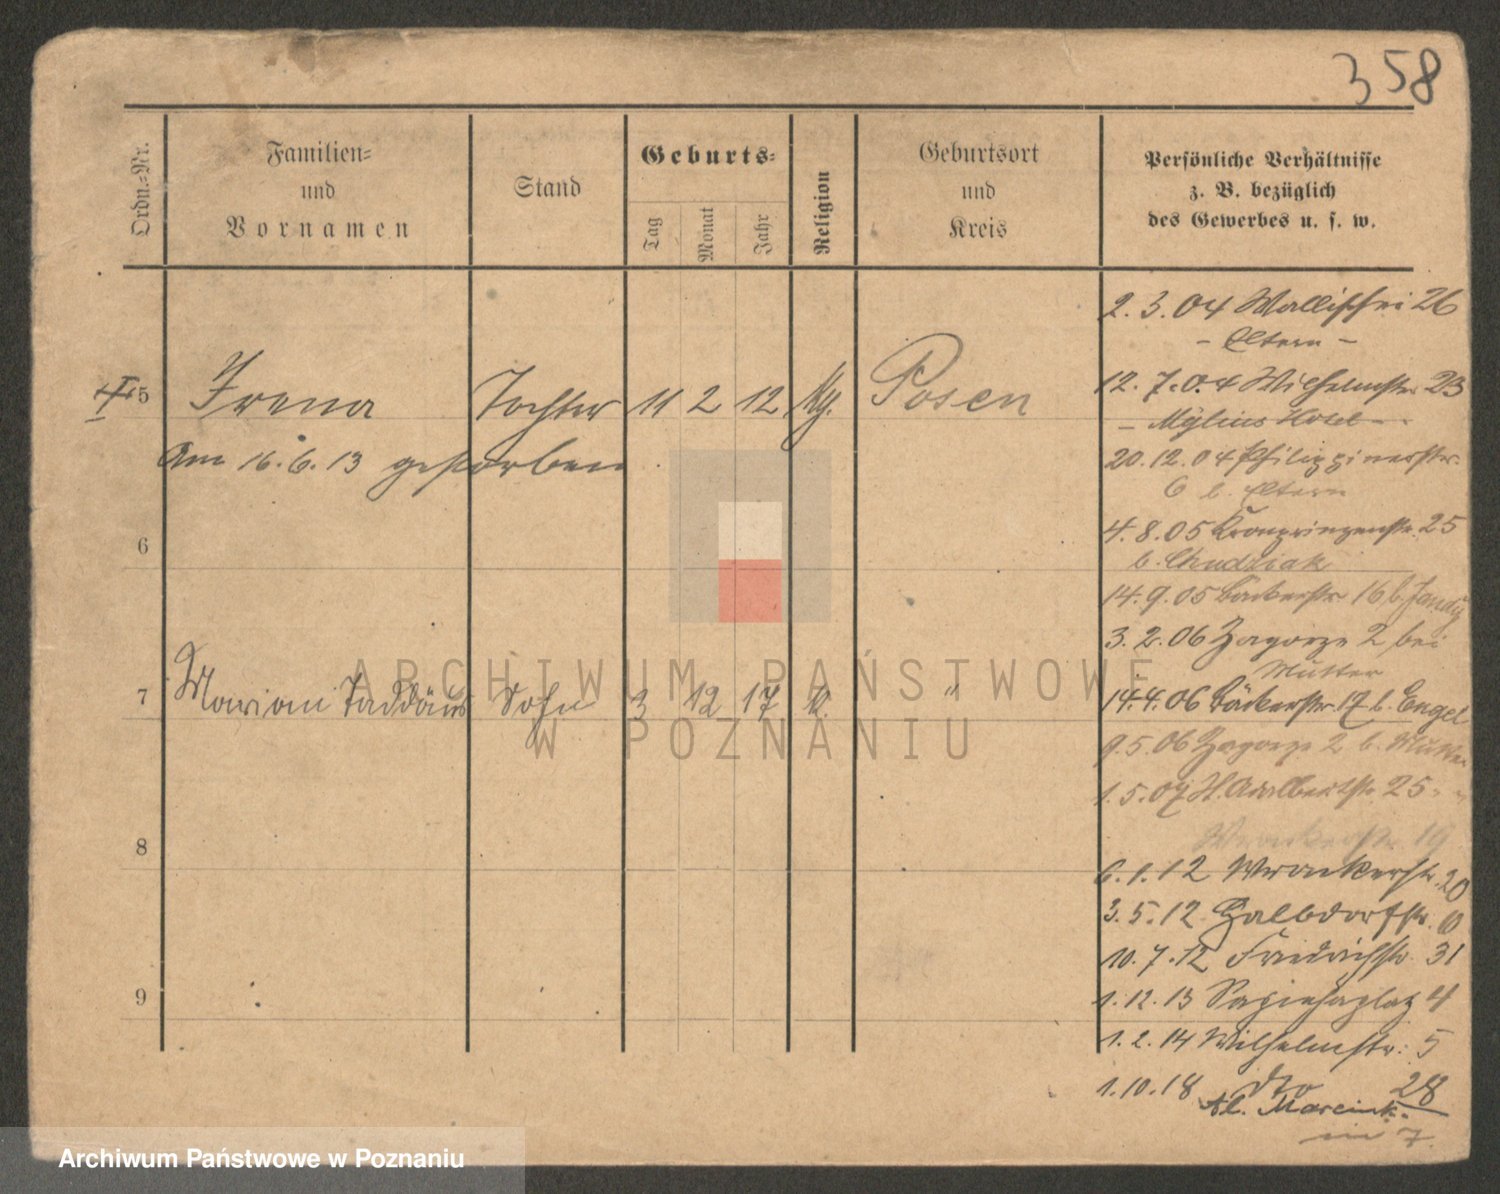 358
Ordn.=Nr.
Familien=
und
Vornamen
Stand
Geburts=
Tag
Monat
Jahr
Religion
Geburtsort
und
Kreis
Persönliche Verhältnisse
z. B. bezüglich
des Gewerbes u. s. w.
5 Irena Tochter 11 2 12 Posen
Am 16.6.13 gestorben
6
7 Marian Taddäus Sohn 3 12 17 k. "
8
9
2.3.04 Wallischei 26
- Eltern -
12.7.04 Wilhelmstr. 23
- Mylius Hotel -
20.12.04 Philippinerstr.
6 b. Eltern
4.8.05 Kronprinzenstr. 25
b. Chudziak
14.9.05 Bäckerstr. 16 b.
3.2.06 Zagorze 2 bei
Mutter
14.4.06 Bäckerstr. 17 b. Engel
9.5.06 Zagorze 2 b. Mutter
1.5.07 St. Adalbertstr. 25
Wronkerstr. 19
6.1.12 Wronkerstr. 20
3.5.12 Halbdorfstr. 10
10.7.12 Friedrichstr. 31
1.12.13 Sapiehaplatz 4
1.2.14 Wilhelmstr. 5
1.10.18 dto 28
Al. Marcink.
7.
ARCHIWUM PAŃSTWOWE
W POZNANIU
Archiwum Państwowe w Poznaniu